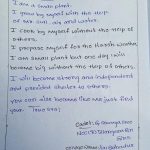 I am a small plant.
I grow by myself with the help
of sun, soil and water.
I cook by myself without the help of
others.
I prepare myself for the harsh weather.
I am small plant but one day will
become big without the help of others.
I will become strong and independent
and provide shelter to others.
you can also become like me just find
your
Cadet